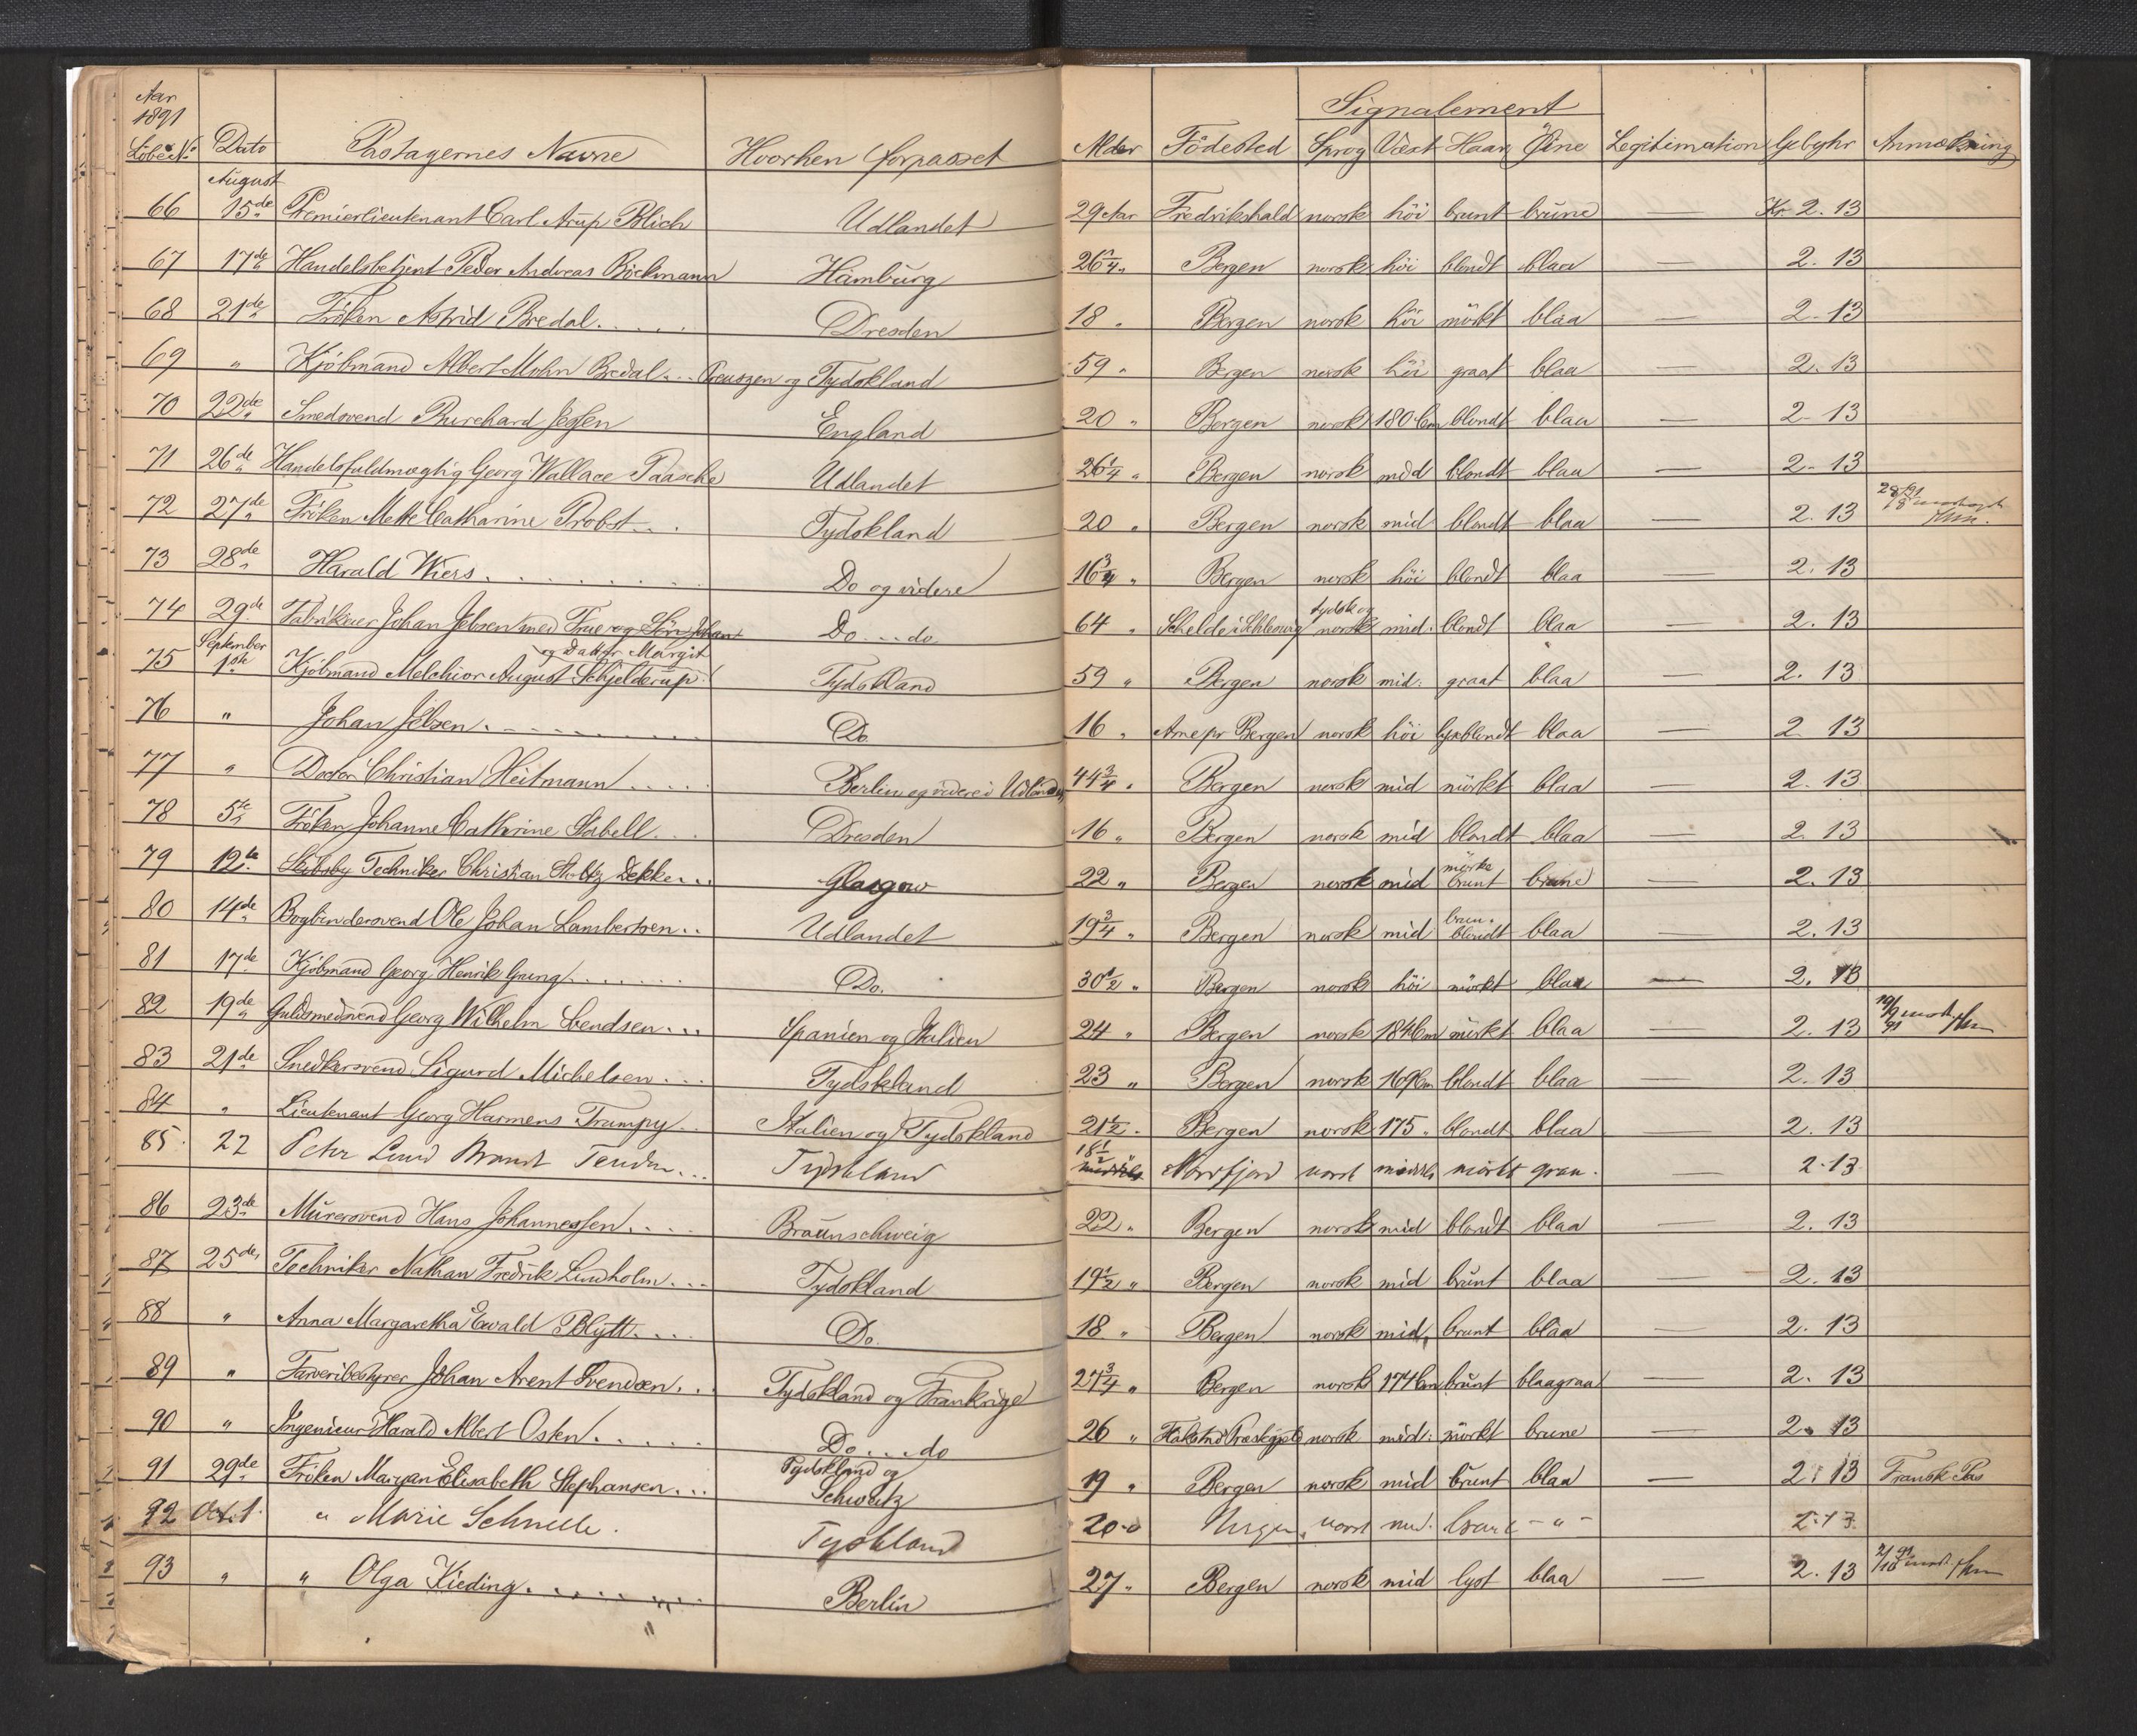 Aar
1891
Signalement
LøbeNo Dato Pastagernes Navne Hvorhen forpasset Alder Födested Sprog Væxt Haar Öine Legitimation Gebyhr Anmærkning
August
66 15de Premierlieutenant Carl Arup Blich Udlandet 29 Aar Fredrikshald norsk höi brunt brune — Kr. 2.13
67 17de Handelsbetjent Peder Andreas Böckmann Hamburg 26 1/4 " Bergen norsk höi blondt blaa — 2.13
68 21de Fröken Astrid Bredal..... Dresden 18 " Bergen norsk höi mörkt blaa — 2-13
69 " Kjöbmand Albert Mohn Bredal... Preuszen og Tydskland 59 " Bergen norsk höi graat blaa — 2.13
70 22de Smedsvend Burchard Jessen England 20 " Bergen norsk 180 Cm blondt blaa — 2-13
71 26de Handelsfuldmægtig Georg Wallace Paasche Udlandet 26 1/4 " Bergen norsk mid blondt blaa — 2-13
72 27de Fröken Mette Catharine Probst... Tydskland 20 " Bergen norsk mid blondt blaa — 2.13 28/8 91
73 28de Harald Wiers......... Do og videre 16 3/4 " Bergen norsk höi blondt blaa — 2.13
74 29de Fabrikeier Johan Jebsen med Frue og Sön Johan Do...do 64 " Schelde i Schleswig tydsk og norsk mid. blondt blaa — 2.13
og Datter Margit
September
75 1ste Kjöbmand Melchior August Schjelderup Tydskland 59 " Bergen norsk mid. graat blaa — 2.13
76 " Johan Jebsen......... Do. 16 " Arne pr Bergen norsk höi lysblondt blaa — 2 13
77 " Doctor Christian Heitmann..... Berlin og videre i Udlandet 44 3/4 " Bergen norsk mid mörkt blaa — 2.13
78 5te Fröken Johanne Cathrine Stabell... Dresden 16 " Bergen norsk mid blondt blaa — 2.13
79 12te Skibsby Techniker Christian Stoltz Dekke... Glasgow 22 " Bergen norsk mid mörke brunt brune — 2.13
80 14de Bogbindersvend Ole Johan Lambertsen.. Udlandet 19 3/4 " Bergen norsk mid brun-blondt blaa — 2.13
81 17de Kjöbmand Georg Henrik Grung....... Do. 30 1/2 " Bergen norsk höi mörkt blaa — 2.13
82 19de Guldsmedsvend Georg Wilhelm Svendsen... Spanien og Italien 24 " Bergen norsk 184 Cm mörkt blaa — 2.13 19/9 91
83 21de Snedkersvend Sigurd Michelsen... Tydskland 23 " Bergen norsk 169 Cm blondt blaa — 2.13
84 " Lieutenant Georg Harmens Trumpy.. Italien og Tydskland 21 1/2 " Bergen norsk 175 " blondt blaa — 2.13
85 22 Peter Lund Brandt Tender... Tydskland 18 1/2 Nordfjord norsk middels mörkt graa. — 2.13
86 23de Murersvend Hans Johannessen.... Braunschweig 22 " Bergen norsk mid blondt blaa — 2.13
87 25de Techniker Nathan Fredrik Lindholm... Tydskland 19 1/2 " Bergen norsk mid brunt blaa — 2.13
88 " Anna Margaretha Ewald Blytt.... Do. 18 " Bergen norsk mid. brunt blaa — 2.13
89 " Farveribestyrer Johan Arent Svendsen... Tydskland og Frankrige 27 3/4 " Bergen norsk 174 Cm brunt blaagraa — 2.13
90 " Ingenieur Harald Albert Osten...... Do....do 26 " Hakstad Præstegjeld norsk mid. mörkt brune — 2.13
91 29de Fröken Maryan Elisabeth Stephansen... Tydskland og Schweitz 19 " Bergen norsk mid brunt blaa — 2.13 Fransk Pas
92 Oct. 1. " Marie Schnelle. Tyskland 20 " Bergen norsk mid. brunt - " - 2.13.
93 " " Olga Kieding......... Berlin 27 " Bergen norsk mid lyst blaa — 2.13 2/10 91